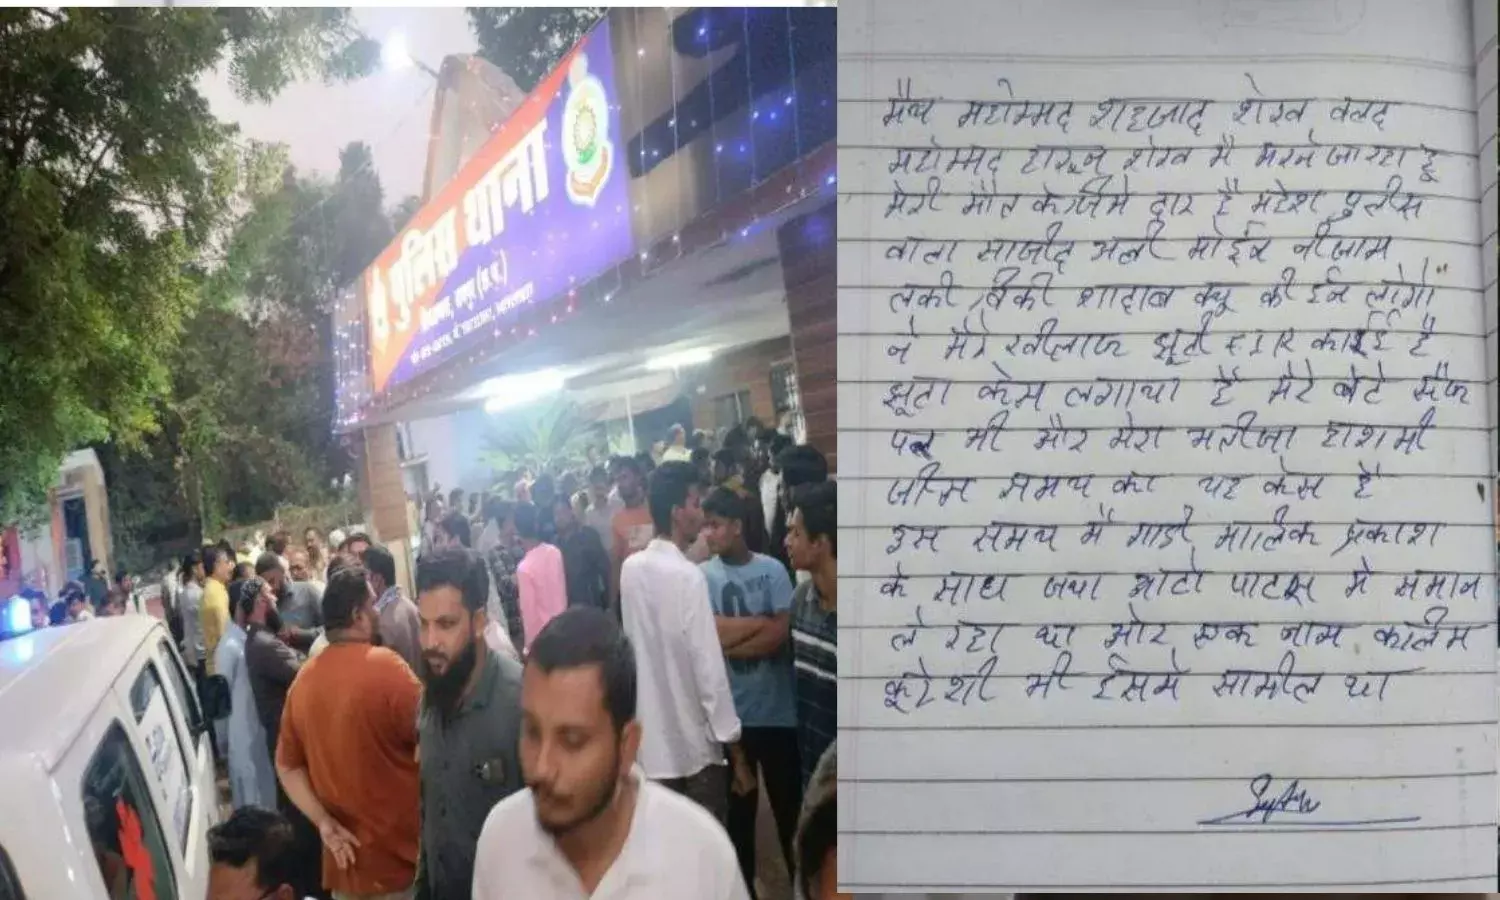 पुलिस थाना
मैय मोहम्मद शहजाद शेख वल्द
मोहम्मद हारून शेख मै मरने जा रहा हू
मेरी मौत के जिमेदार है महेश पुलीस
वाला साजीद अली मोईन नीजाम
लकी, विकी शादाब क्यू की ईन लोगो
ने मेरे खीलाफ झूटी FIR कराई है
झूटा केस लगाया है मेरे बेटे सैफ
पर भी और मेरा भतीजा हाशमी
जीस समय का यह केस है
इस समय मै गाडी मालिक प्रकाश
के साथ जया ओटो पाटस मे समान
ले रहा था ओर एक नाम कालिम
कूरेशी भी ईसमे सामील था